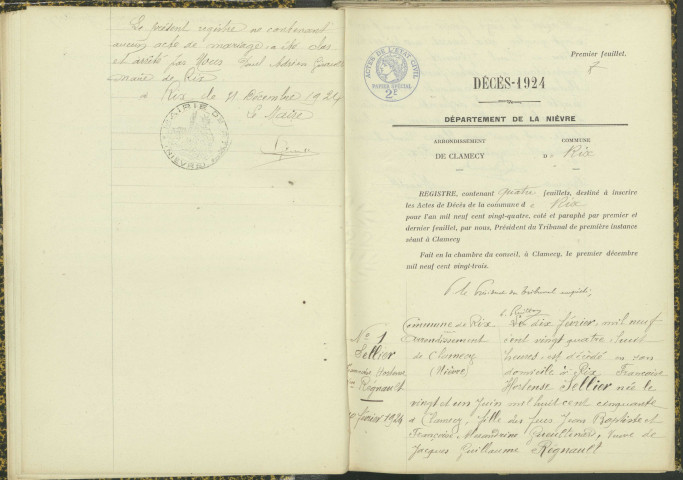 Le présent registre ne contenant
aucun acte de mariage a été clos
et arrêté par Nous Paul Adrien
maire de Rix
à Rix le 31 Décembre 1924
Le Maire
MAIRIE DE
(NIÈVRE)
Premier feuillet.
ACTES DE L'ETAT CIVIL
PAPIER SPECIAL
2F
DÉCÈS-1924
DÉPARTEMENT DE LA NIÈVRE
ARRONDISSEMENT
DE CLAMECY
COMMUNE
De Rix
REGISTRE, contenant quatre feuillets, destiné à inscrire
les Actes de Décès de la commune de Rix
pour l'an mil neuf cent vingt-quatre, coté et paraphé par premier et
dernier feuillet, par nous, Président du Tribunal de première instance
séant à Clamecy
Fait en la chambre du conseil, à Clamecy, le premier décembre
mil neuf cent vingt-trois.
No 1
Sellier
Françoise Hortense
Vve Regnault
10 février 1924
Commune de Rix
Arrondissement
de Clamecy
(Nièvre)
Le dix février, mil neuf
cent vingt quatre,
heures, est décédé en son
domicile à Rix Françoise
Hortense Sellier née le
vingt et un Juin mil huit cent cinquante
à Clamecy, fille des feus Jean Baptiste et
Françoise, Alexandrine veuve de
Jacques Guillaume Regnault